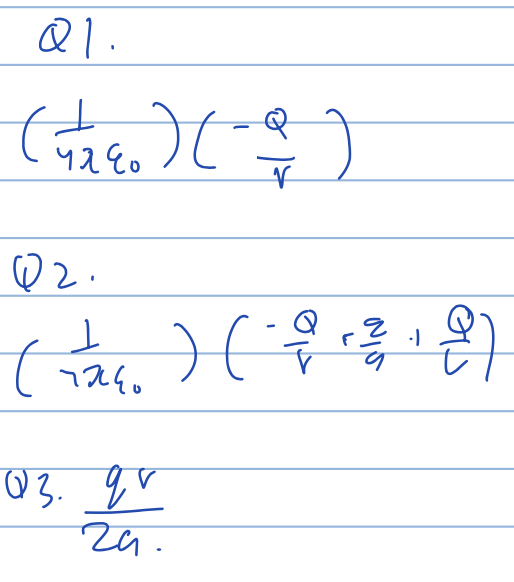 Q1.
(1/4πε₀)(-Q/r)
Q2.
(1/4πε₀)(-Q/r - q/a + Q/r)
Q3. qr/2a.